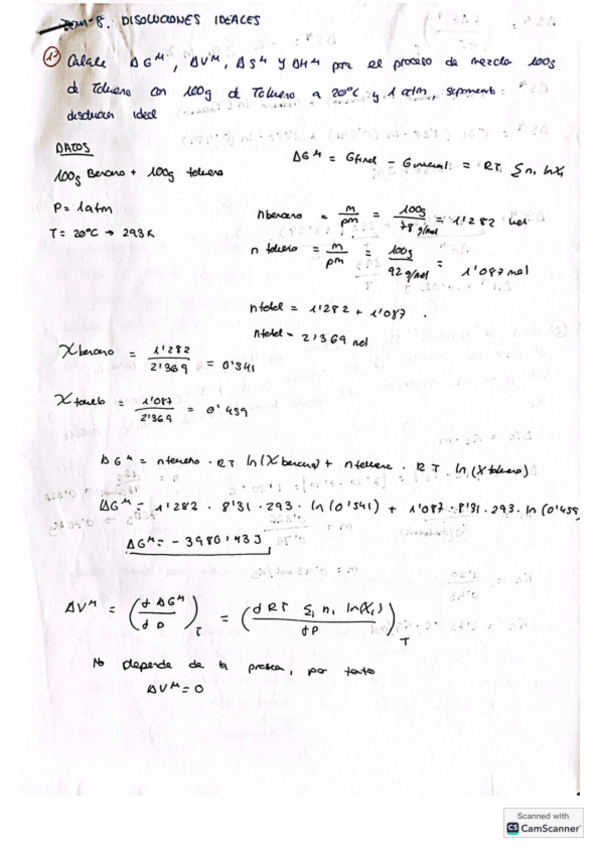 Tema 8. DISOLUCIONES IDEALES
1) Calcule ΔG^M, ΔV^M, ΔS^M y ΔH^M para el proceso de mezcla 100g
de Tolueno con 100g de Tolueno a 20°C y 1 atm,
disolución ideal
DATOS
100g Benceno + 100g tolueno
P = 1 atm
T = 20°C → 293 K
ΔG^M = Gfinal - Ginicial = RT Σ ni lnXi
n benceno = m/pm = 100g/78 g/mol = 1'282 mol
n tolueno = m/pm = 100g/92 g/mol = 1'087 mol
n total = 1'282 + 1'087.
n total = 2'369 mol
X benceno = 1'282/2'369 = 0'541
X tolueno = 1'087/2'369 = 0'459
ΔG^M = n · RT ln(X benceno) + n · RT · ln(X tolueno)
ΔG^M = 1'282 · 8'31 · 293 · ln(0'541) + 1'087 · 8'31 · 293 · ln(0'459
ΔG^M = - 3980'433
ΔV^M = (d ΔG^M/dP)T = (d RT Σi ni ln(Xi)/dP)T
No depende de la presión, por tanto
ΔV^M = 0
Scanned with
CS CamScanner